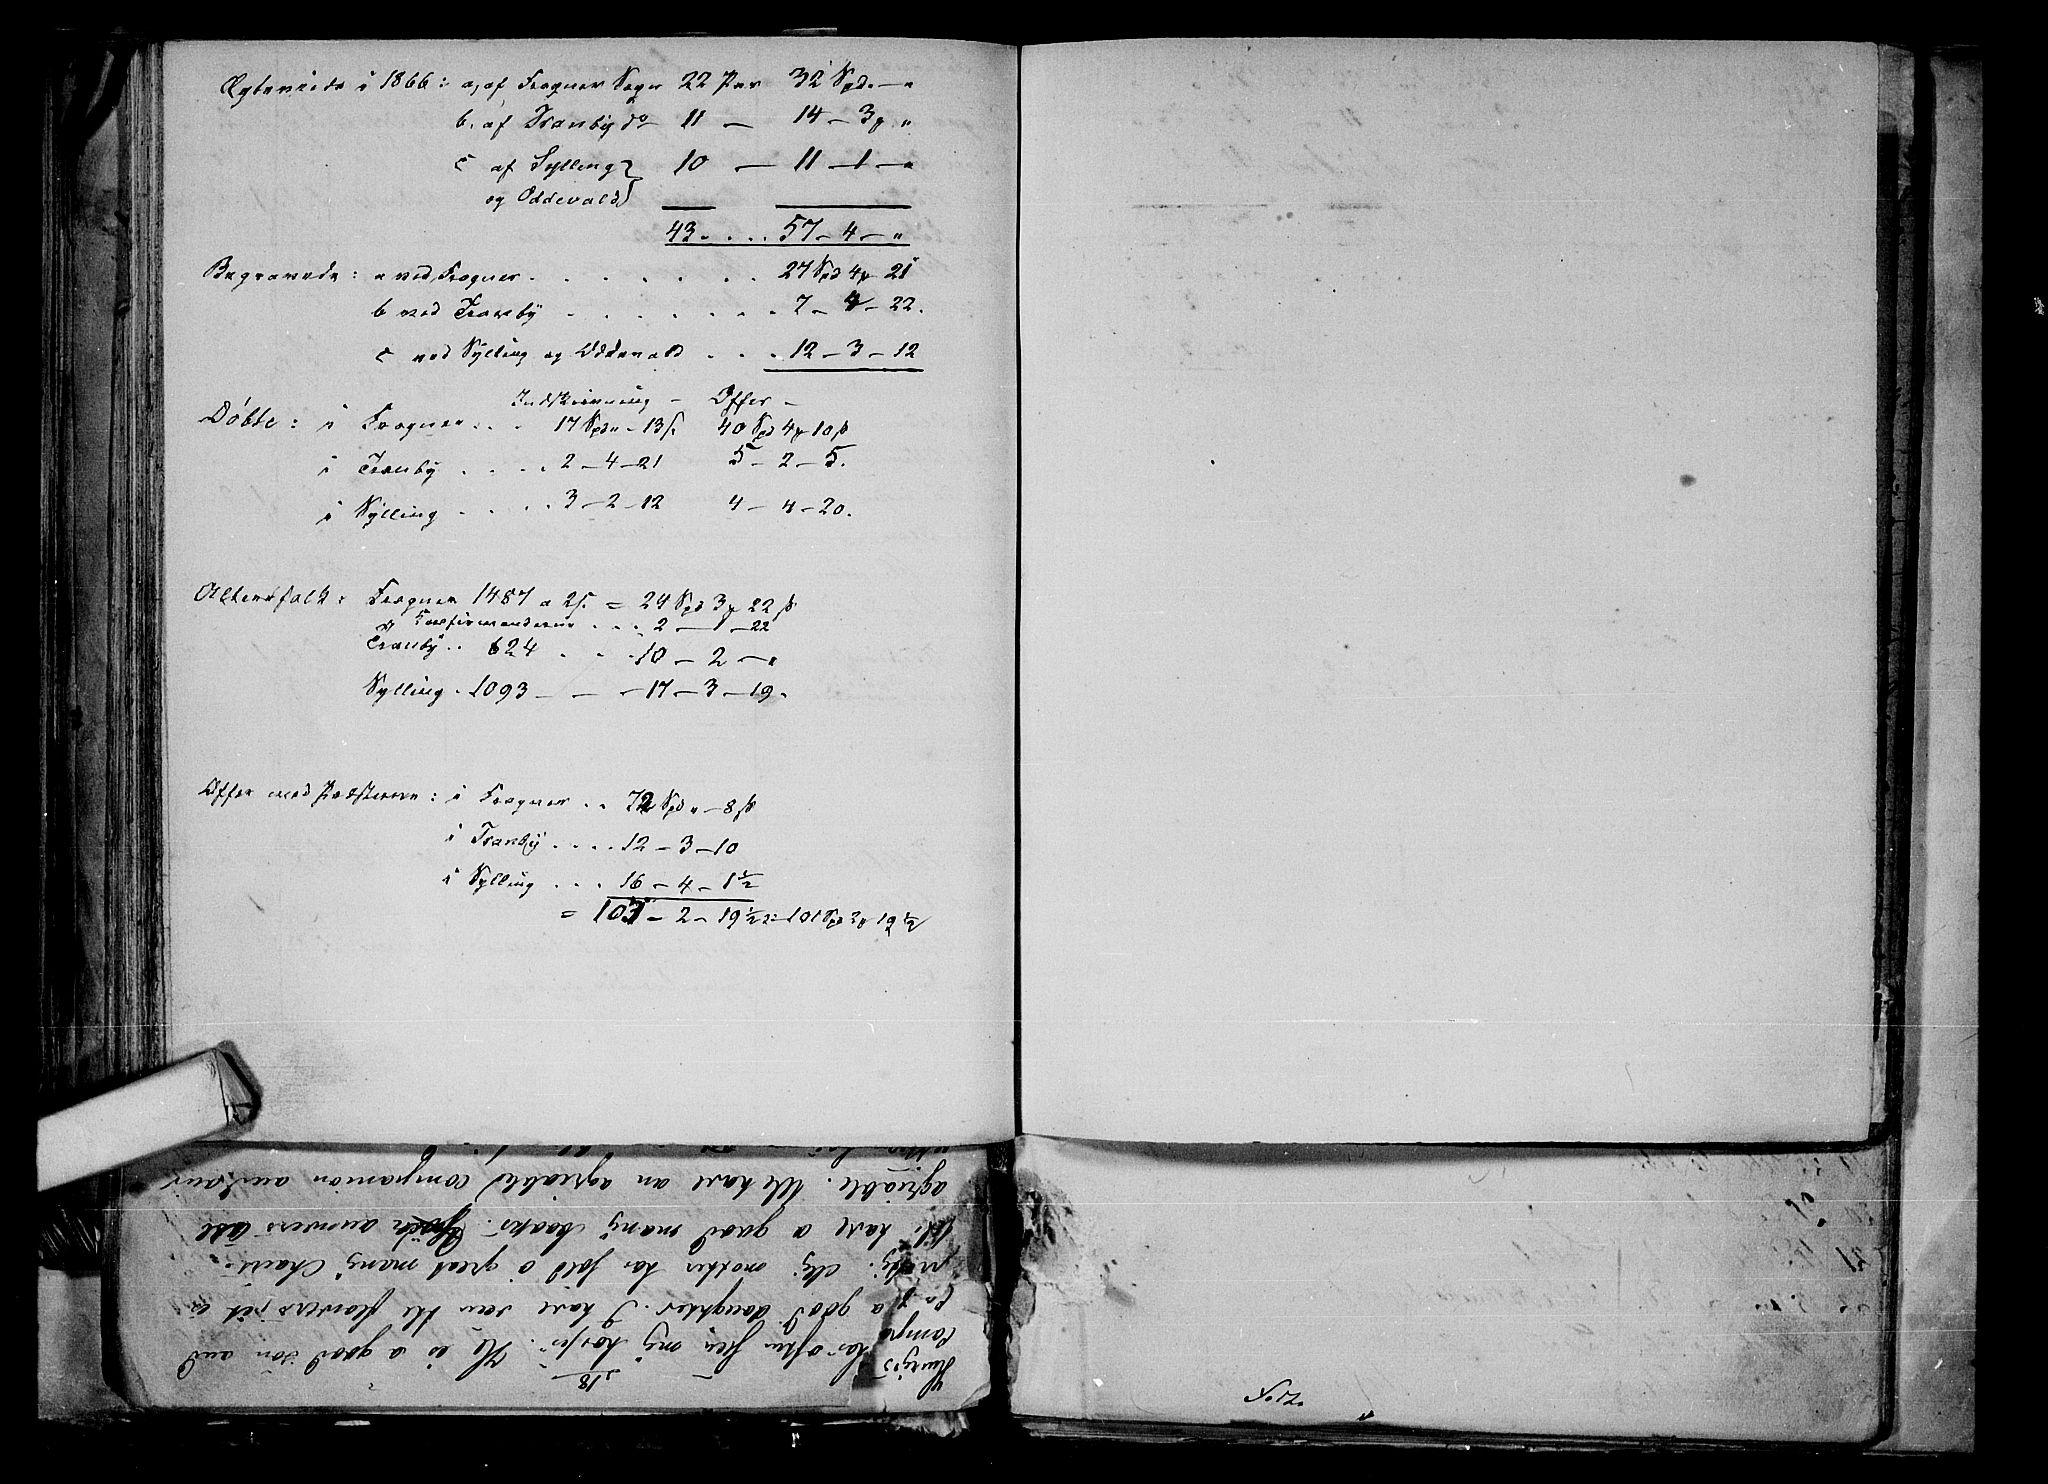 Ægteviede i 1866: a, af Frogner Sogn 22 Par 32 Spd. — "
b. af Tranby do 11 — 14 — 3 "
c af Sylling 10 — 11 — 1 — "
og Oddevald
43 . . . . 57 — 4 — "
Begravede: a ved Frogner . . . . . . 27 Spd 4 21
b ved Tranby . . . . . . . 7 — 4 — 22.
c ved Sylling og Oddevald . . . 12 — 3 — 12
Indskrivning — Offer —
Døbte: i Frogner . . . 17 Spd " — 13 s. 40 Spd 4 10 s
i Tranby . . . . 2 — 4 — 21 5 — 2 — 5.
i Sylling . . . . . 3 — 2 — 12 4 — 4 — 20.
Altersfolk: Frogner 1487 a 2 s. = 24 Spd 3 22 s
Confirmanderne . . . . 2 — 1 — 22
Tranby . . 624 . . . 10 — 2 — "
Sylling . 1093 — — — 17 — 3 — 19.
Offer med Præsterne: i Frogner . . 72 Spd " — 8 s
i Tranby . . . . 12 — 3 — 10
i Sylling . . . 16 — 4 — 1 1/2
= 101 — 2 — 19 1/2 = 101 Spd 2 19 1/2
agreable. We have an agreable companion
have a good many books. answers
My mother has sold a great many
a good daughter. I have seen the flowers
often my horse. He is a good son and
18